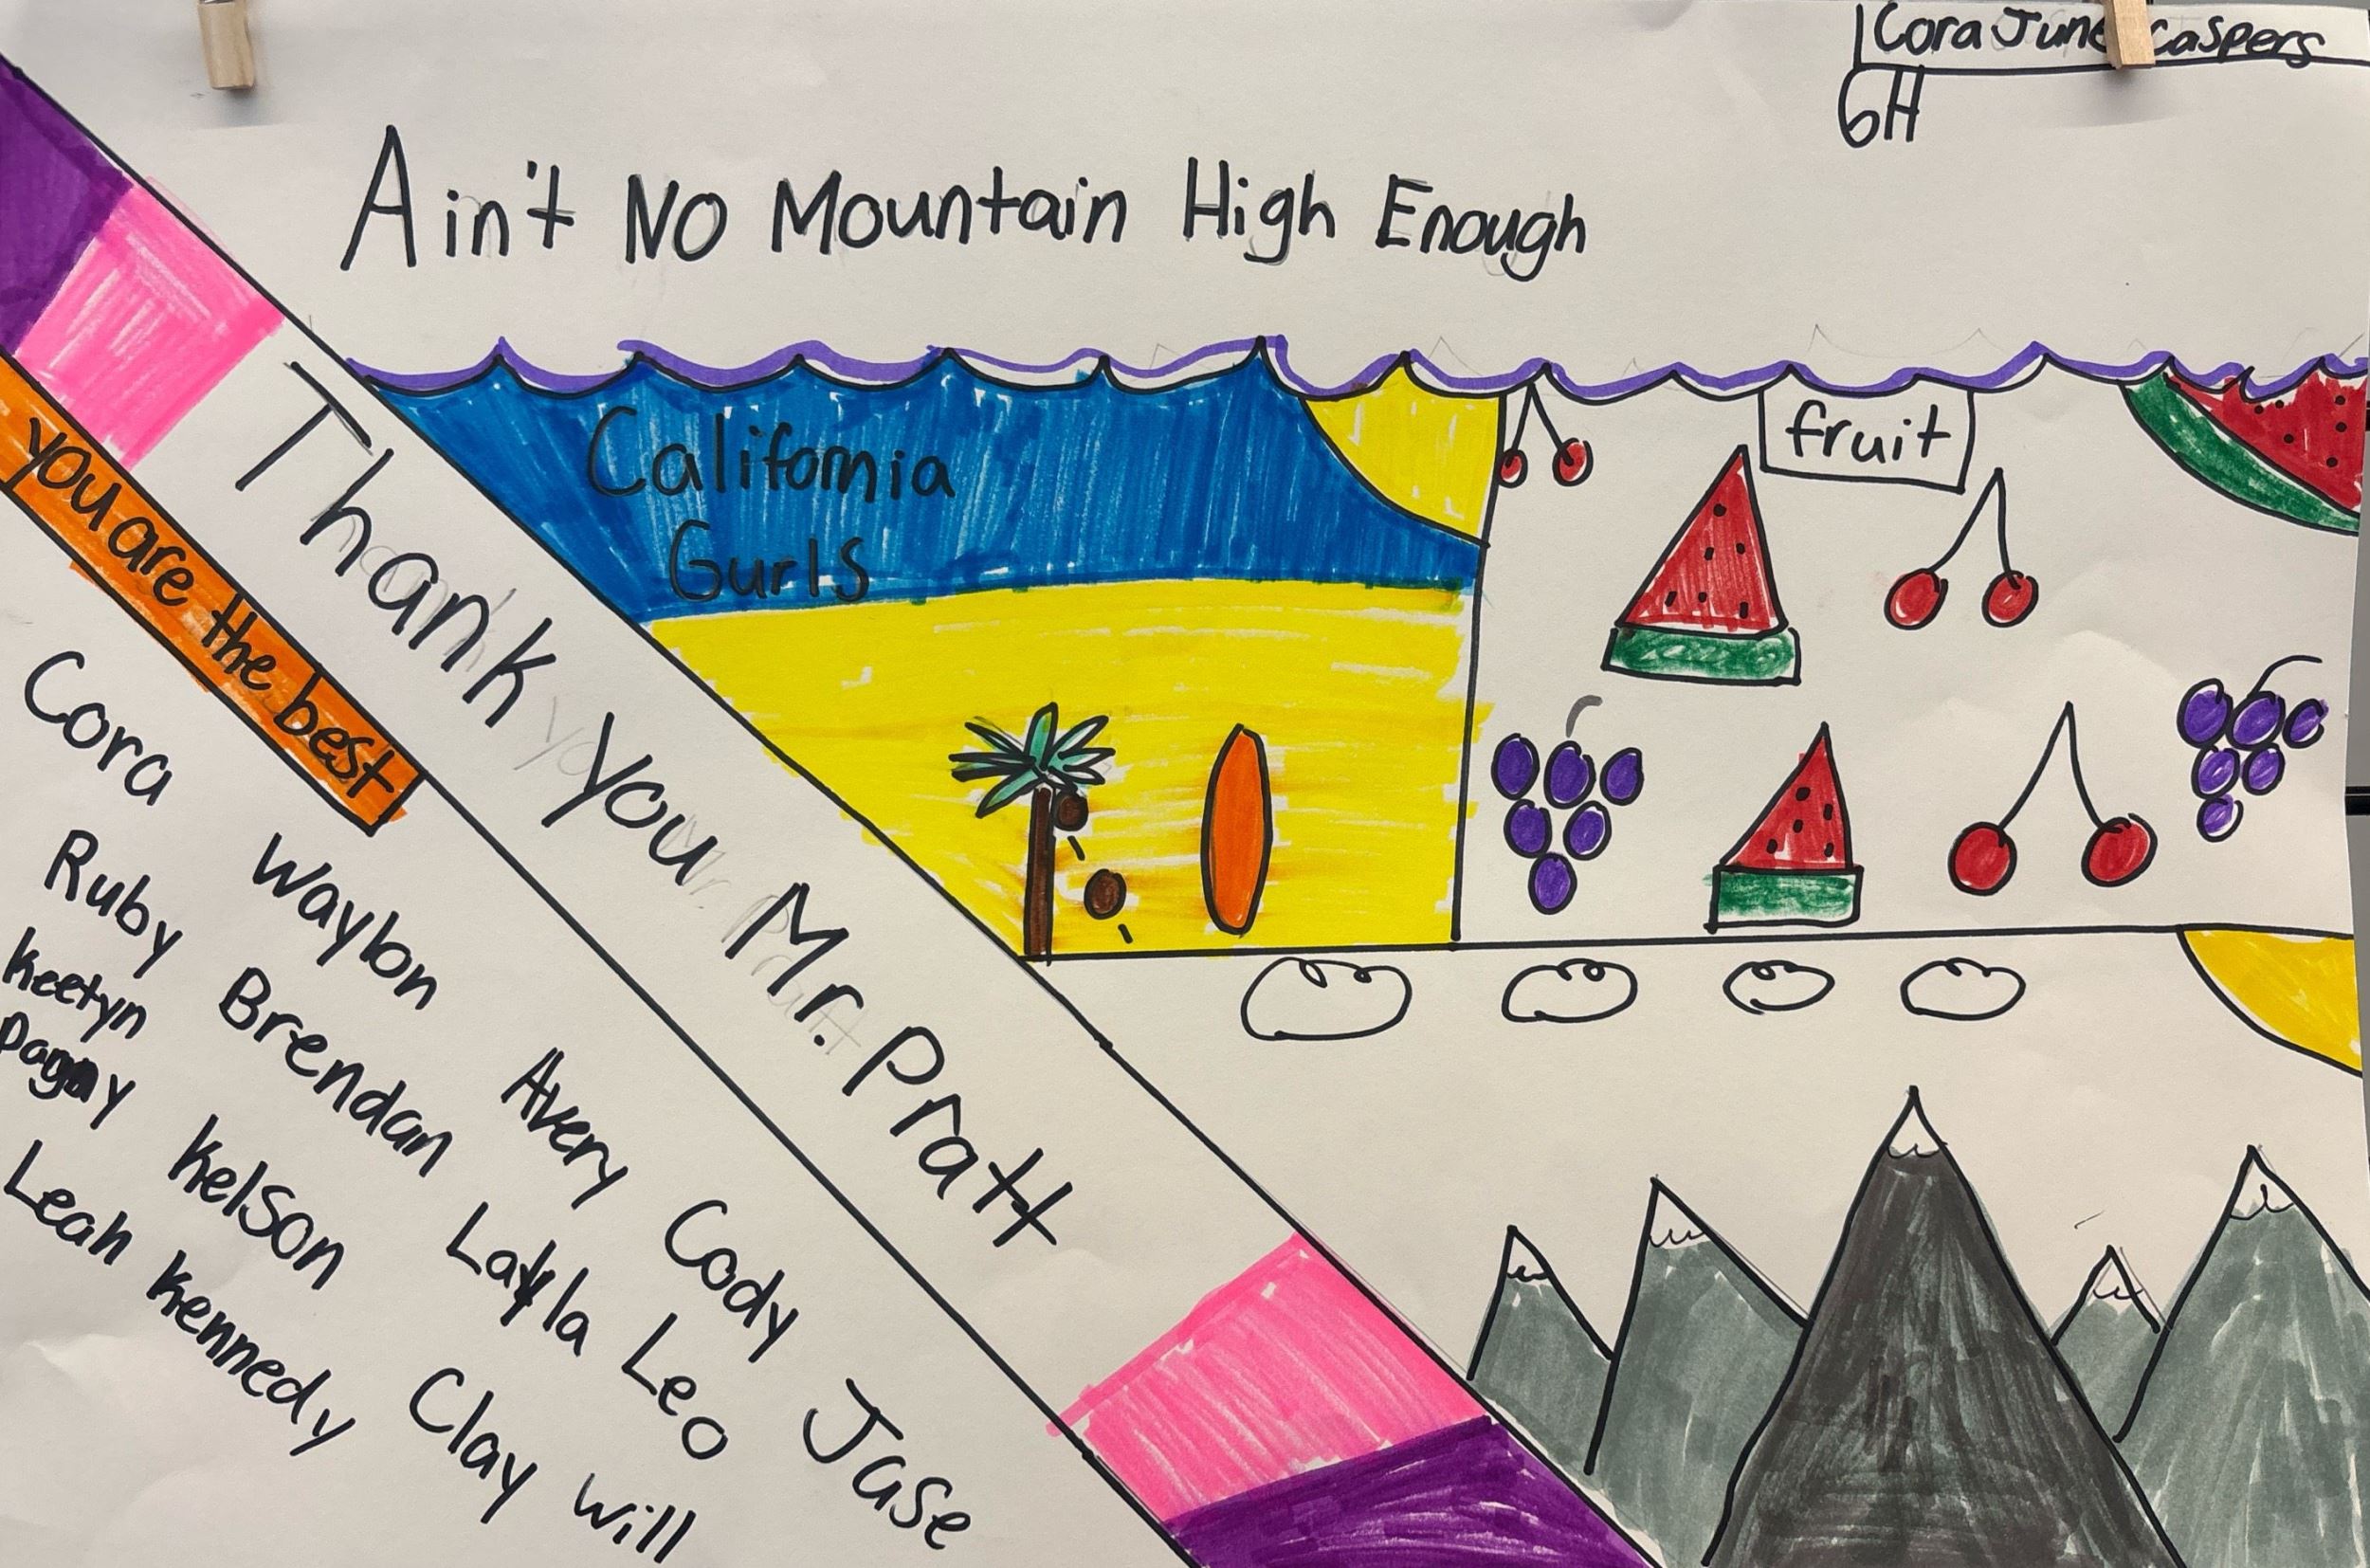 Cora June Caspers
6H
Ain't No Mountain High Enough
California
Gurls
fruit
Thank you Mr. Pratt
you are the best
Cora Waylon Avery Cody Jase
Ruby Brendan Layla Leo
Keetyn
Kelson Clay Will
Leah Kennedy